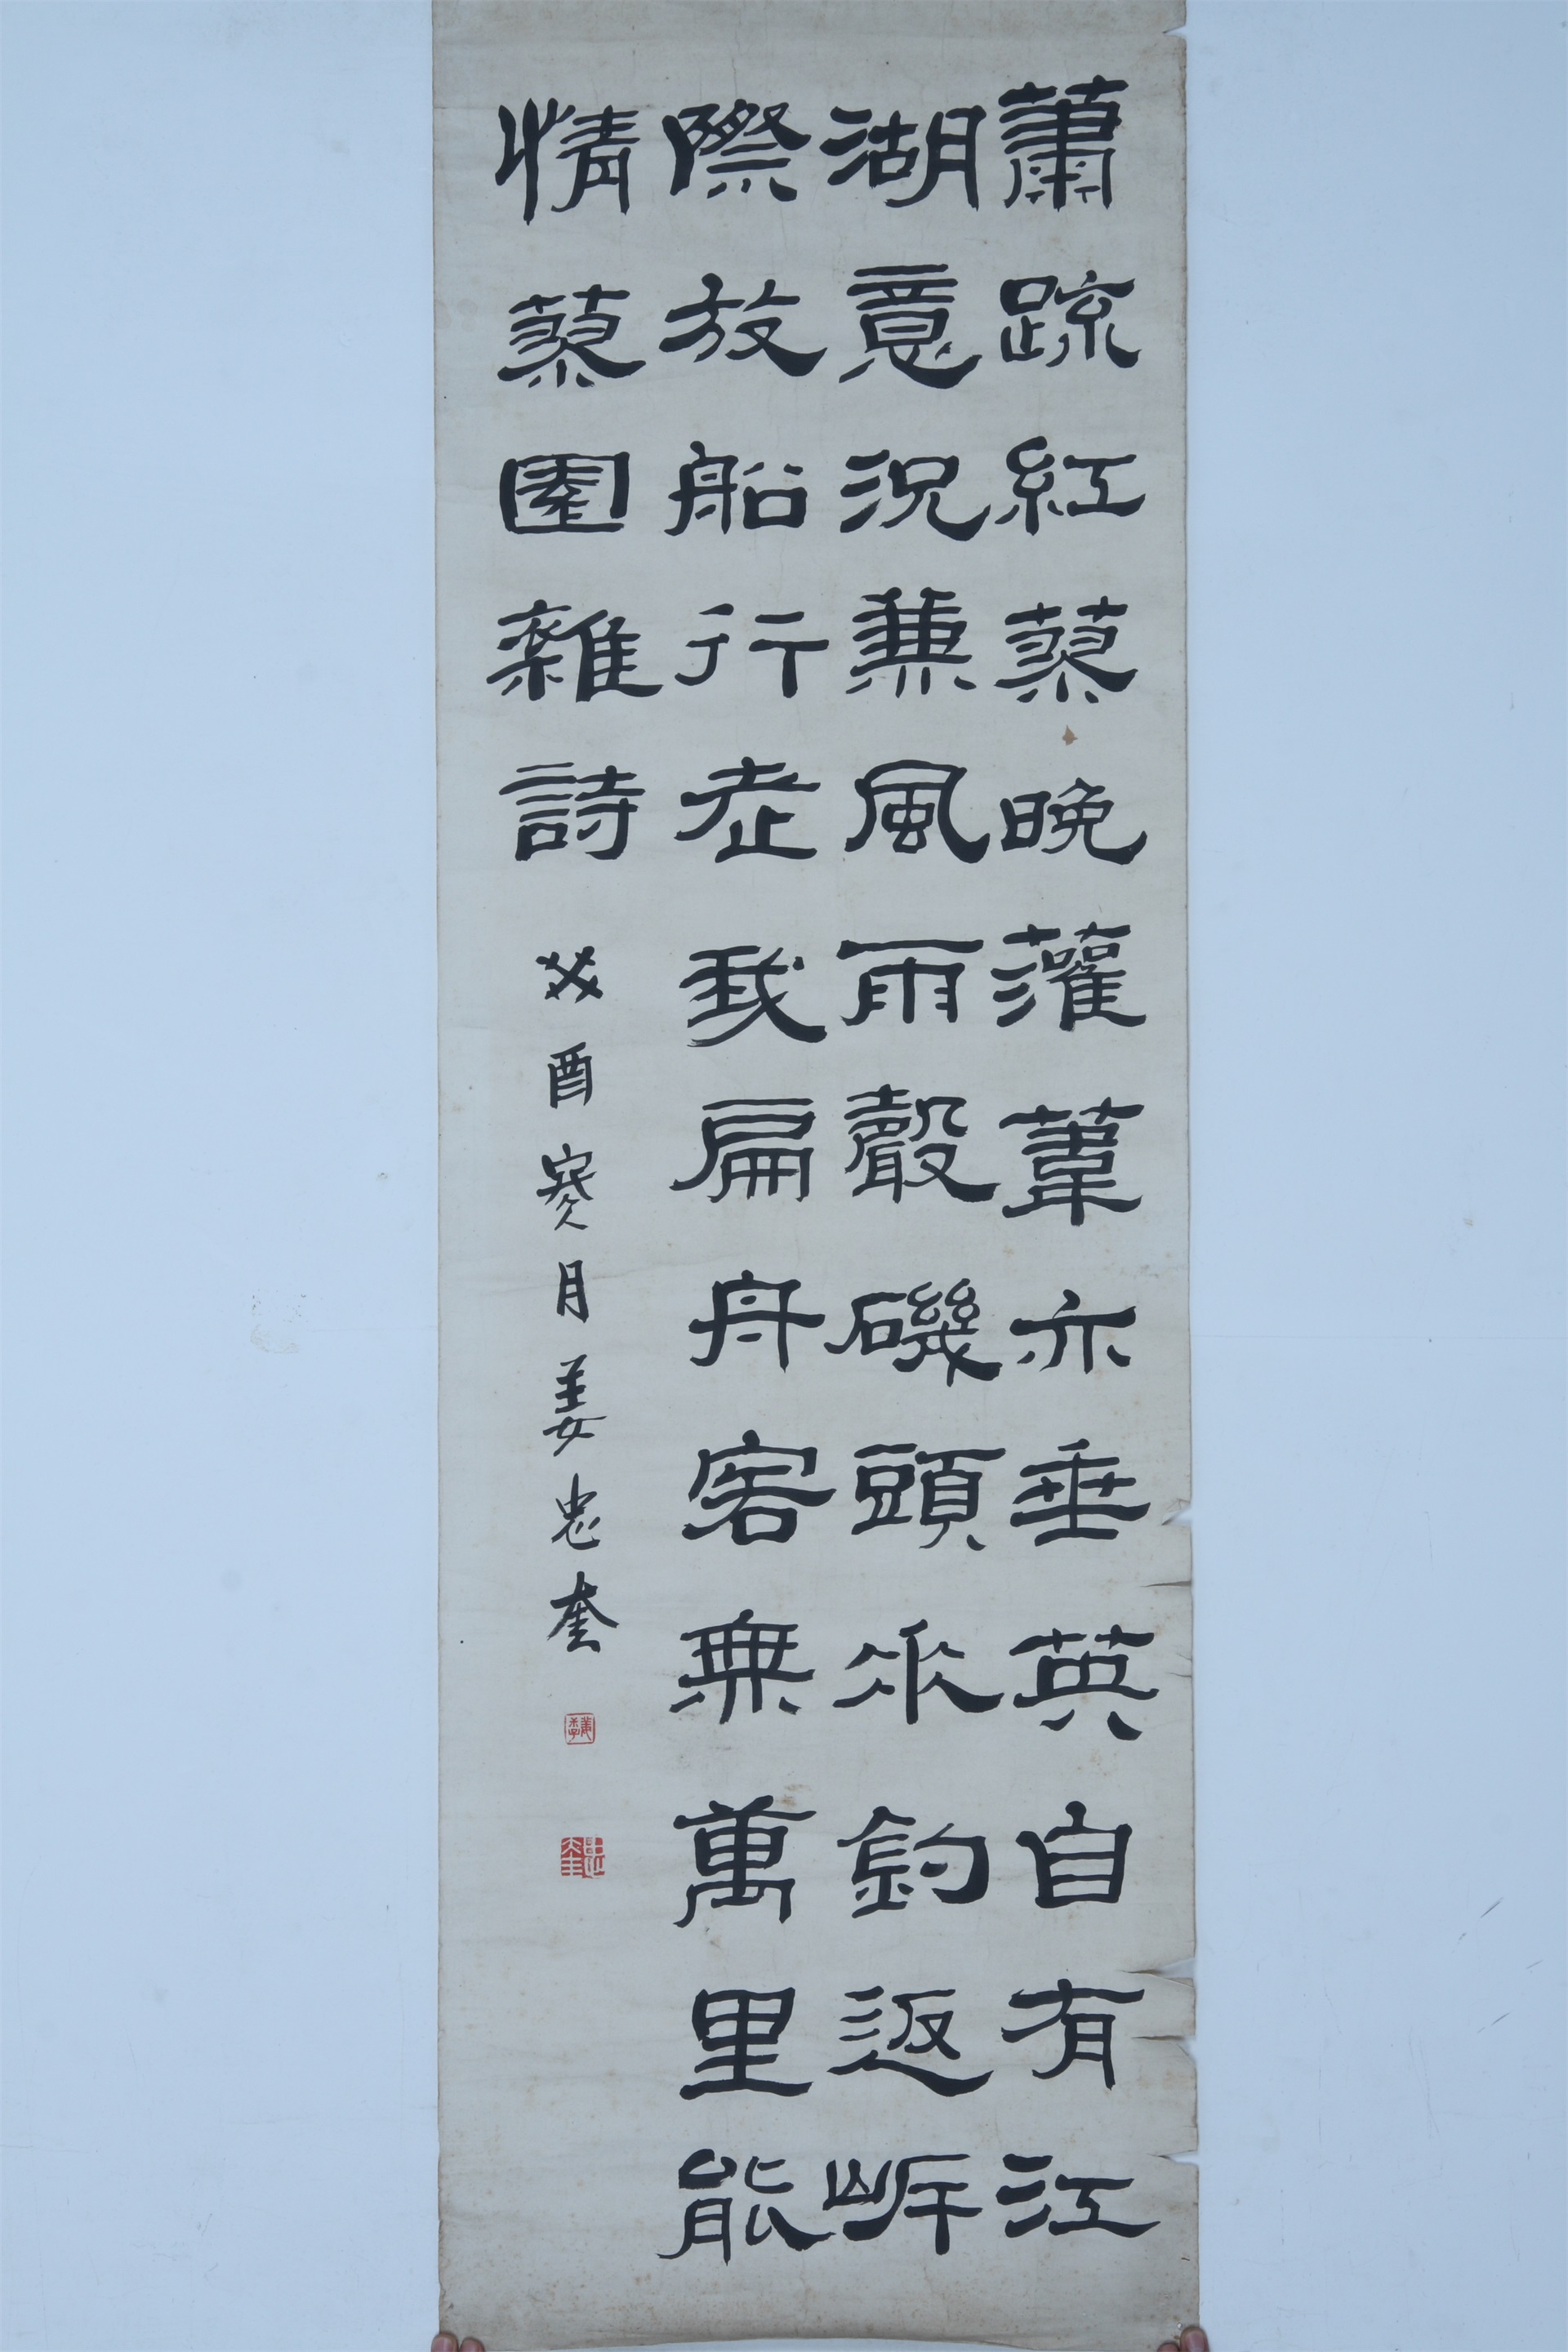 蕭踈紅蓼晚灌葦亦垂英自有江
湖意況兼風雨聲磯頭來釣返岸
際放船行老我扁舟客無萬里能
情蓼園雜詩
癸酉月姜忠奎
忠奎